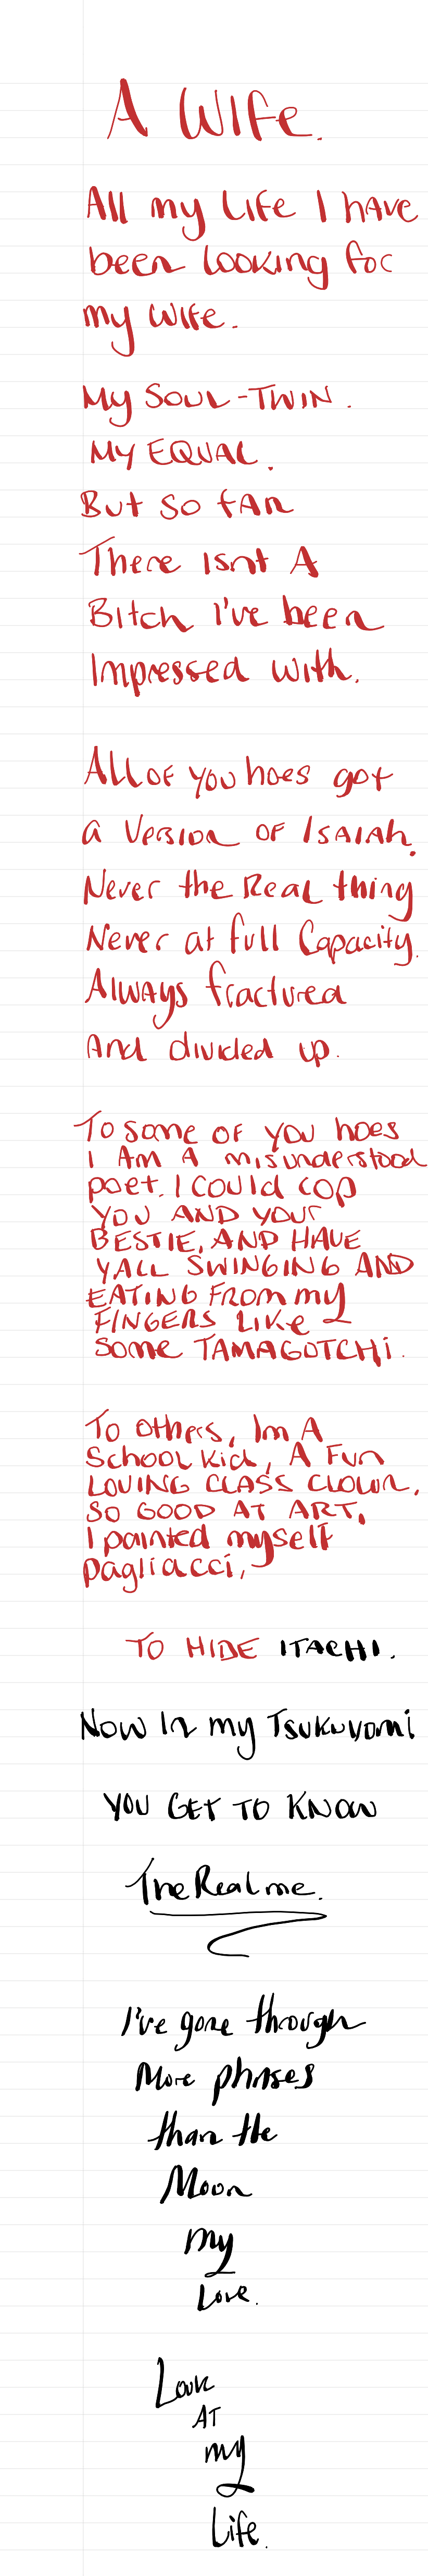 A WIFE.
All my LIFE I hAve
been Looking for
my WIFE.
My SOUL-TWIN.
MY EQUAL.
But SO fAR
There Isnt A
Bitch I've been
Impressed With.
ALL OF you hoes got
a Version OF ISAIAh.
Never the Real thing
Never at full Capacity.
Always fractured
And divided up.
To some of you hoes
I AM A misunderstood
poet. I COULD COP
YOU AND YOUR
BESTIE, AND HAVE
YALL SWINGING AND
EATING FROM my
FINGERS LIKE
some TAMAGOTCHI.
To others, Im A
School kid, A Fun
LOVING CLASS CLOWN,
SO GOOD AT ART,
I painted myself
Pagliacci,
TO HIDE ITACHI.
Now In my Tsukuyomi
YOU GET TO KNOW
The Real me.
I've gone through
More phases
than the
Moon
my
Love.
Look
AT
my
Life.